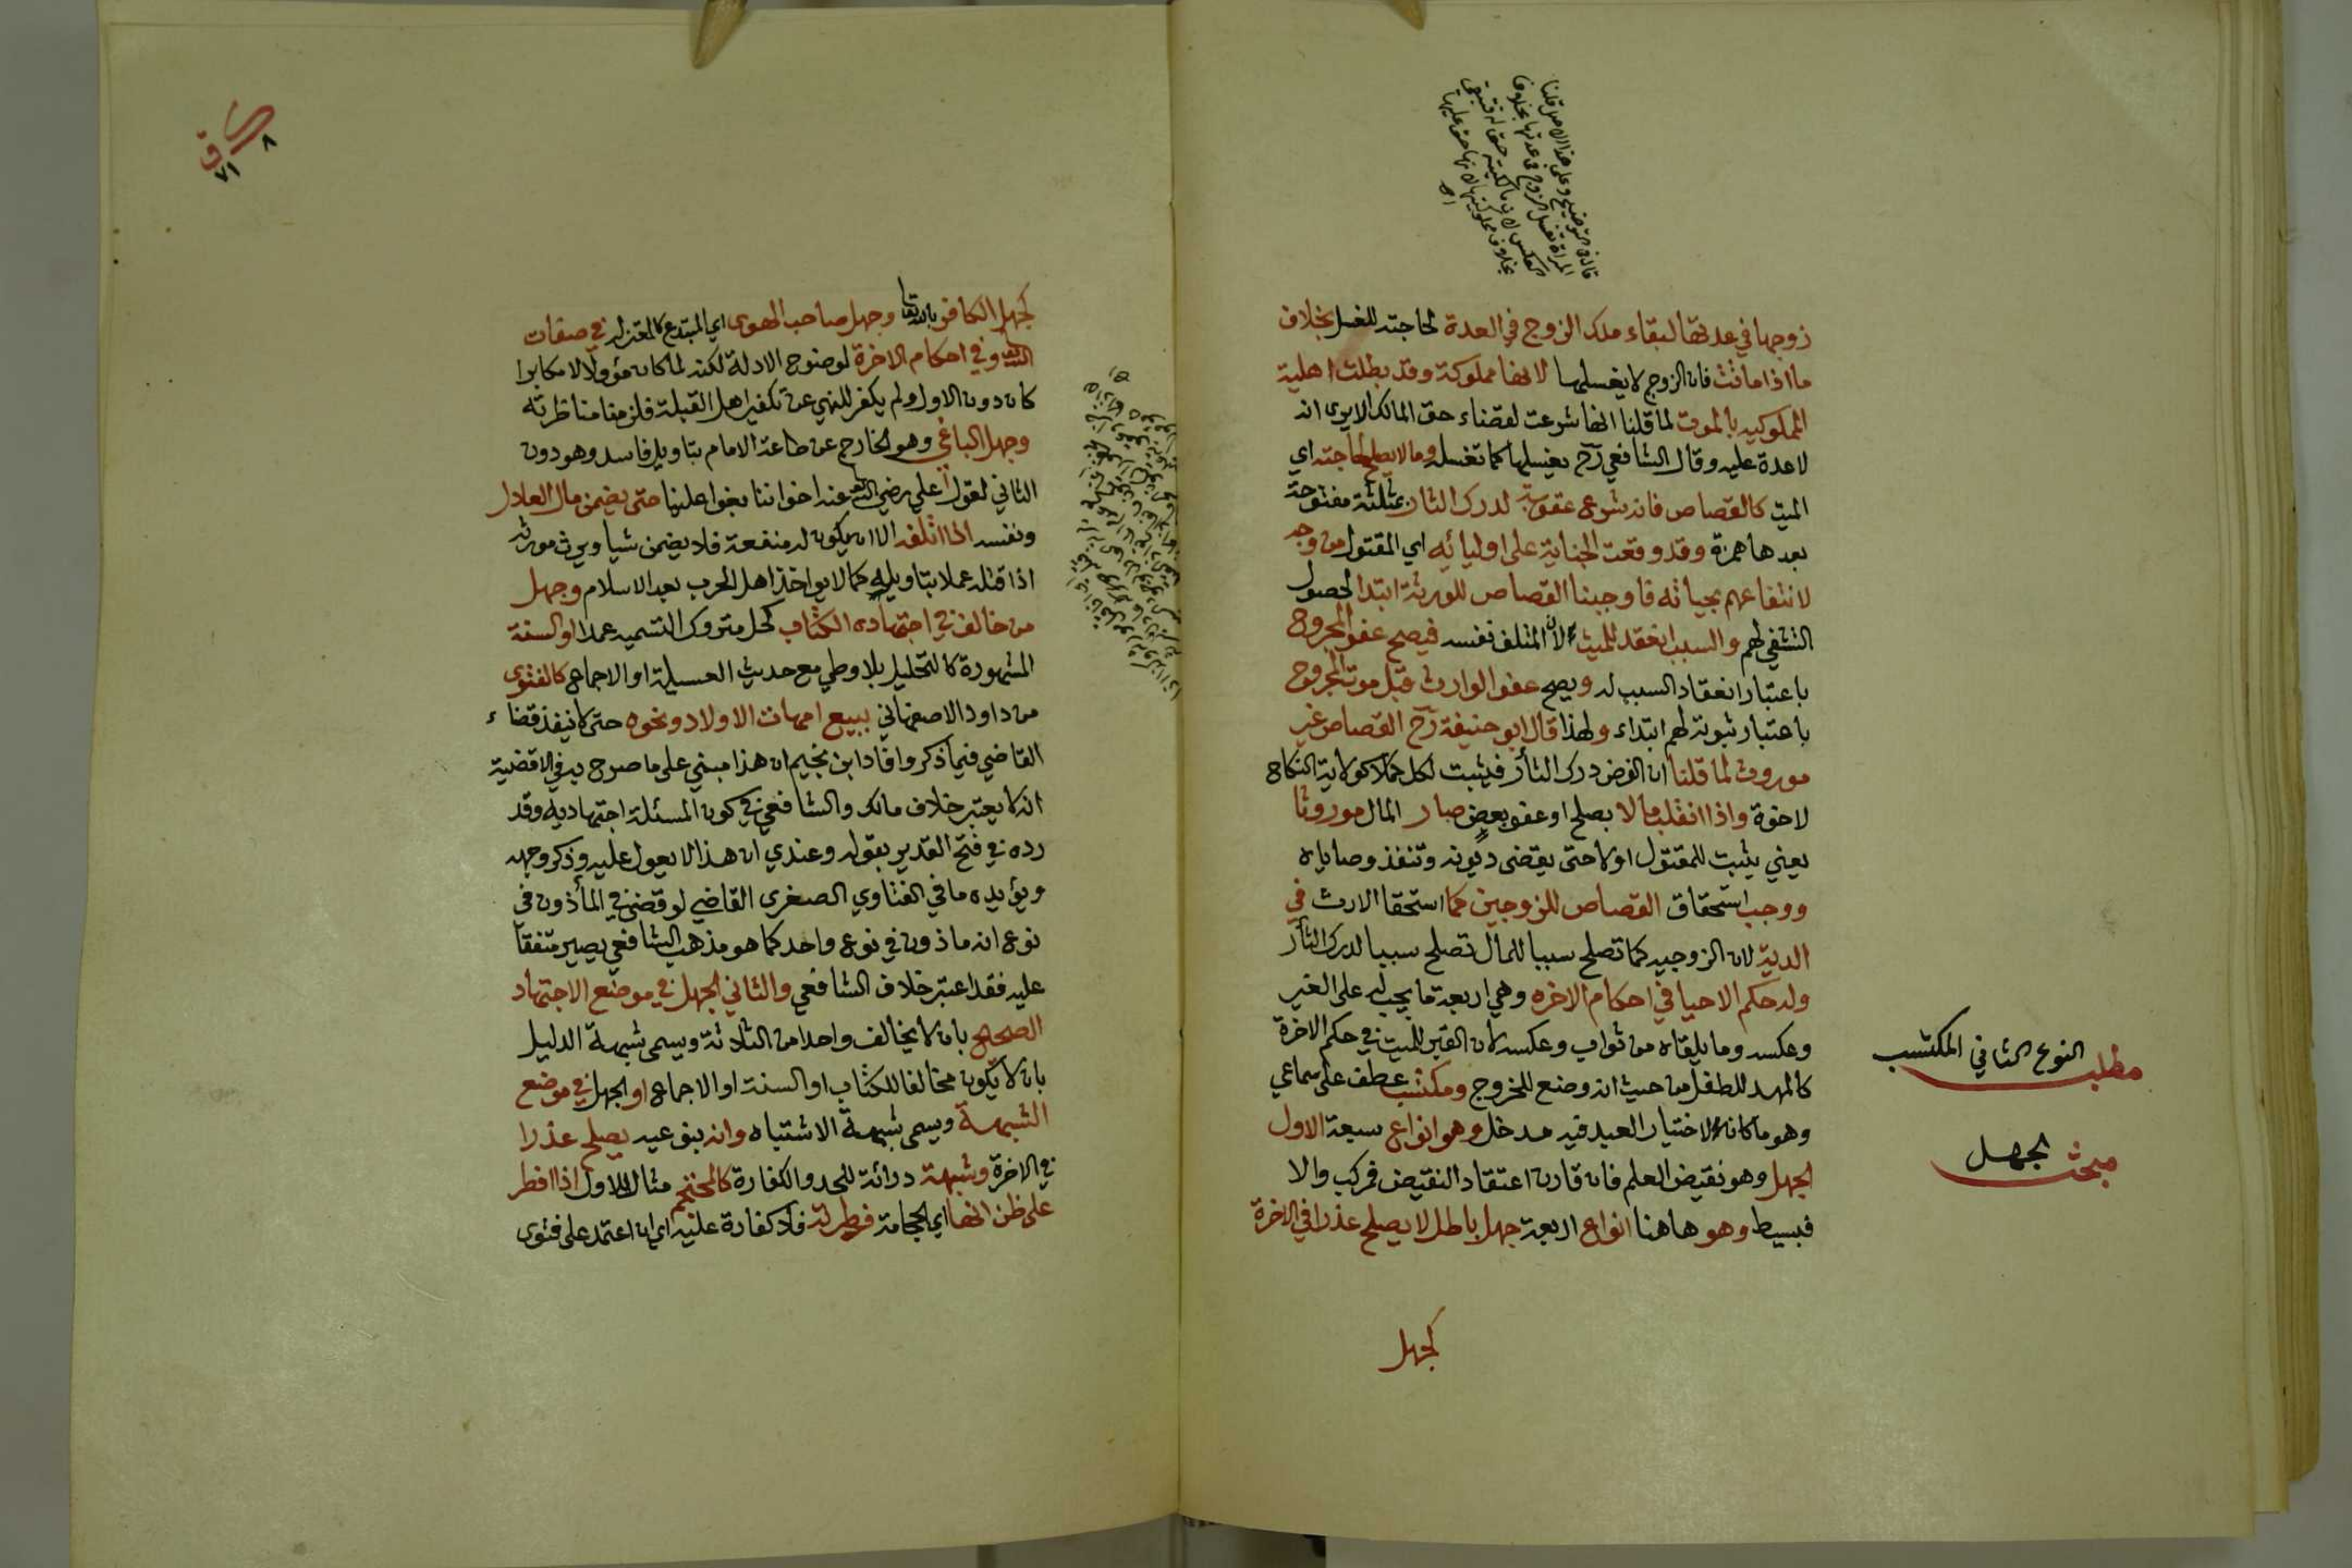 زوجها في عدتها لبقاء ملك الزوج في العدة لحاجته للغسل بخلاف
ما اذا ماتت فان الزوج لا يغسلها لانها مملوكة وقد بطلت اهلية
المملوكيه بالموت لما قلنا انها شرعت لقضاء حق المالك الا يرى انه
لا عدة عليه وقال الشافعي رح يغسلها كما تغسله وما لا يصلح لحاجته اي
الميت كالقصاص فانه شرع عقوبة لدرك الثار بمثلثة مفتوحة
بعدها همزة وقد وقعت الجناية على اوليائه اي المقتول من وجه
لانتفاعهم بحياته فاوجبنا القصاص للورثة ابتدا لحصول
التشفي لهم والسبب انعقد للميت لان المتلف نفسه فيصح عفو المجروح
باعتبار انعقاد السبب له ويصح عفو الوارث قبل موت المجروح
باعتبار ثبوته لهم ابتداء ولهذا قال ابو حنيفة رح القصاص غير
موروث لما قلنا ان الغرض درك الثأر فيثبت لكل كملا كولاية النكاح
لاخوة واذا انقلب مالا بصلح او عفو بعض صار المال موروثا
يعني يثبت للمقتول اولا حتى يقضى ديونه وتنفذ وصاياه
ووجب استحقاق القصاص للزوجين كما استحقا الارث في
الدية لان الزوجيه كما تصلح سببا للمال تصلح سببا لدرك الثأر
وله حكم الاحيا في احكام الاخره وهي اربعة ما يجب له على الغير
وعكسه وما يلقاه من ثواب وعكسه لان القبر للميت في حكم الاخرة
كالمهد للطفل من حيث انه وضع للخروج ومكتسب عطف على سماعي
وهو ما كان لاختيار العبد فيه مدخل وهو انواع سبعة الاول
الجهل وهو نقيض العلم فان قارن اعتقاد النقيض فمركب والا
فبسيط وهو هاهنا انواع اربعة جهل باطل لا يصلح عذرا في الاخرة
كجهل
مطلب النوع الثاني المكتسب
مبحث الجهل
كجهل الكافر بالله تعا وجهل صاحب الهوى اي المبتدع كالمعتزله في صفات
الله تعا وفي احكام الاخرة لوضوح الادلة لكنه لما كان مؤولا لا مكابرا
كان دون الاول ولم يكفر للنهي عن تكفير اهل القبلة فلزمنا مناظرته
وجهل الباغي وهو الخارج عن طاعة الامام بتاويل فاسد وهو دون
الثاني لقول علي رضي الله عنه اخواننا بغوا علينا حتى يضمن مال العادل
ونفسه اذا اتلفه الا ان يكون له منفعة فلا يضمن شيا ويرث مورثه
اذا قتله عملا بتاويله كما لا يواخذ اهل الحرب بعد الاسلام وجهل
من خالف في اجتهاده الكتاب كحل متروك التسميه عمدا او السنة
المشهورة كالتحليل بلا وطي مع حديث العسيلة او الاجماع كالفتوى
من داود الاصفهاني ببيع امهات الاولاد ونحوه حتى لا ينفذ قضاء
القاضي فيما ذكر وافاد ابن نجيم ان هذا مبني على ما صرح به في الاقضية
انه لا يعتبر خلاف مالك والشافعي في كون المسئلة اجتهاديه وقد
رده في فتح القدير بقوله وعندي ان هذا لا يعول عليه وذكر وجهه
ويؤيده ما في الفتاوي الصغرى القاضي لو قضى في المأذون في
نوع انه ماذون في نوع واحد كما هو مذهب الشافعي يصير متفقا
عليه فقد اعتبر خلاف الشافعي والثاني الجهل في موضع الاجتهاد
الصحيح بان لا يخالف واحدا من الثلاثة ويسمى شبهة الدليل
بان لا يكون مخالفا للكتاب او السنة او الاجماع او الجهل في موضع
الشبهة ويسمى شبهة الاشتباه وانه بنوعيه يصلح عذرا
في الاخرة وشبهة دراثة للحد والكفارة كالمحتجم مثال للاول اذا افطر
على ظن انها اي الحجامة فطرته فلا كفارة عليه اي ان اعتمد على فتوى